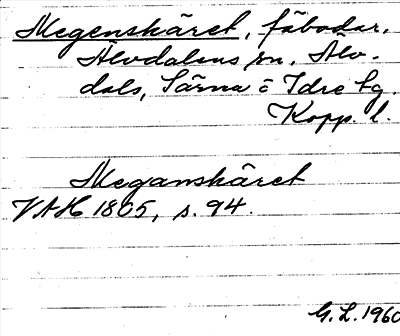 Megenskäret, fäbodar,
Älvdalens sn, Älv-
dals, Särna o Idre tg.
Kopp. l.
Meganskäret
VAH 1805, s. 94.
G. L. 1960